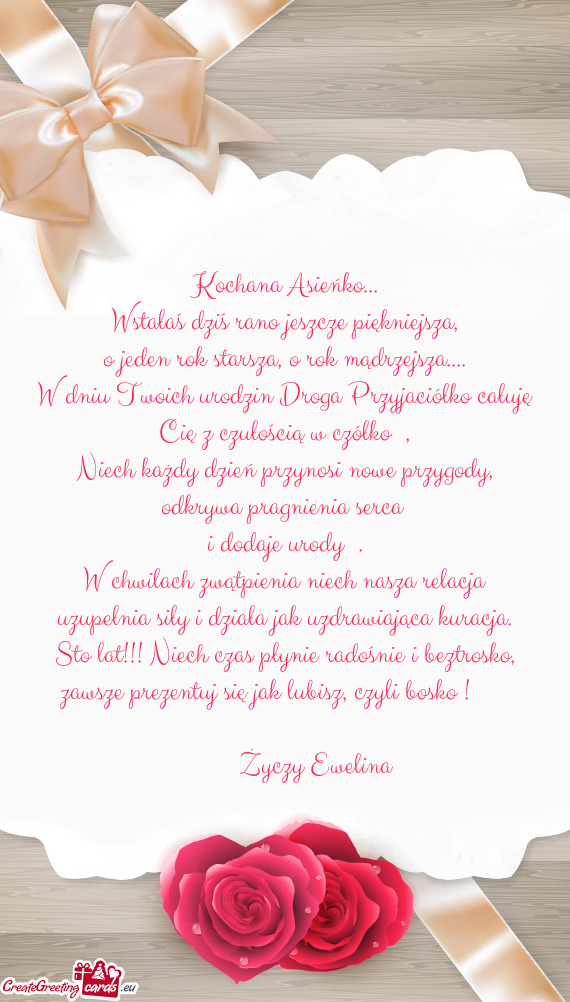 Kochana Asieńko...
Wstałaś dziś rano jeszcze piękniejsza,
o jeden rok starsza, o rok mądrzejsza....
W dniu Twoich urodzin Droga Przyjaciółko całuję
Cię z czułością w czółko ,
Niech każdy dzień przynosi nowe przygody,
odkrywa pragnienia serca
i dodaje urody .
W chwilach zwątpienia niech nasza relacja
uzupełnia siły i działa jak uzdrawiająca kuracja.
Sto lat!!! Niech czas płynie radośnie i beztrosko,
zawsze prezentuj się jak lubisz, czyli bosko !
Życzy Ewelina
CreateGreeting cards .eu